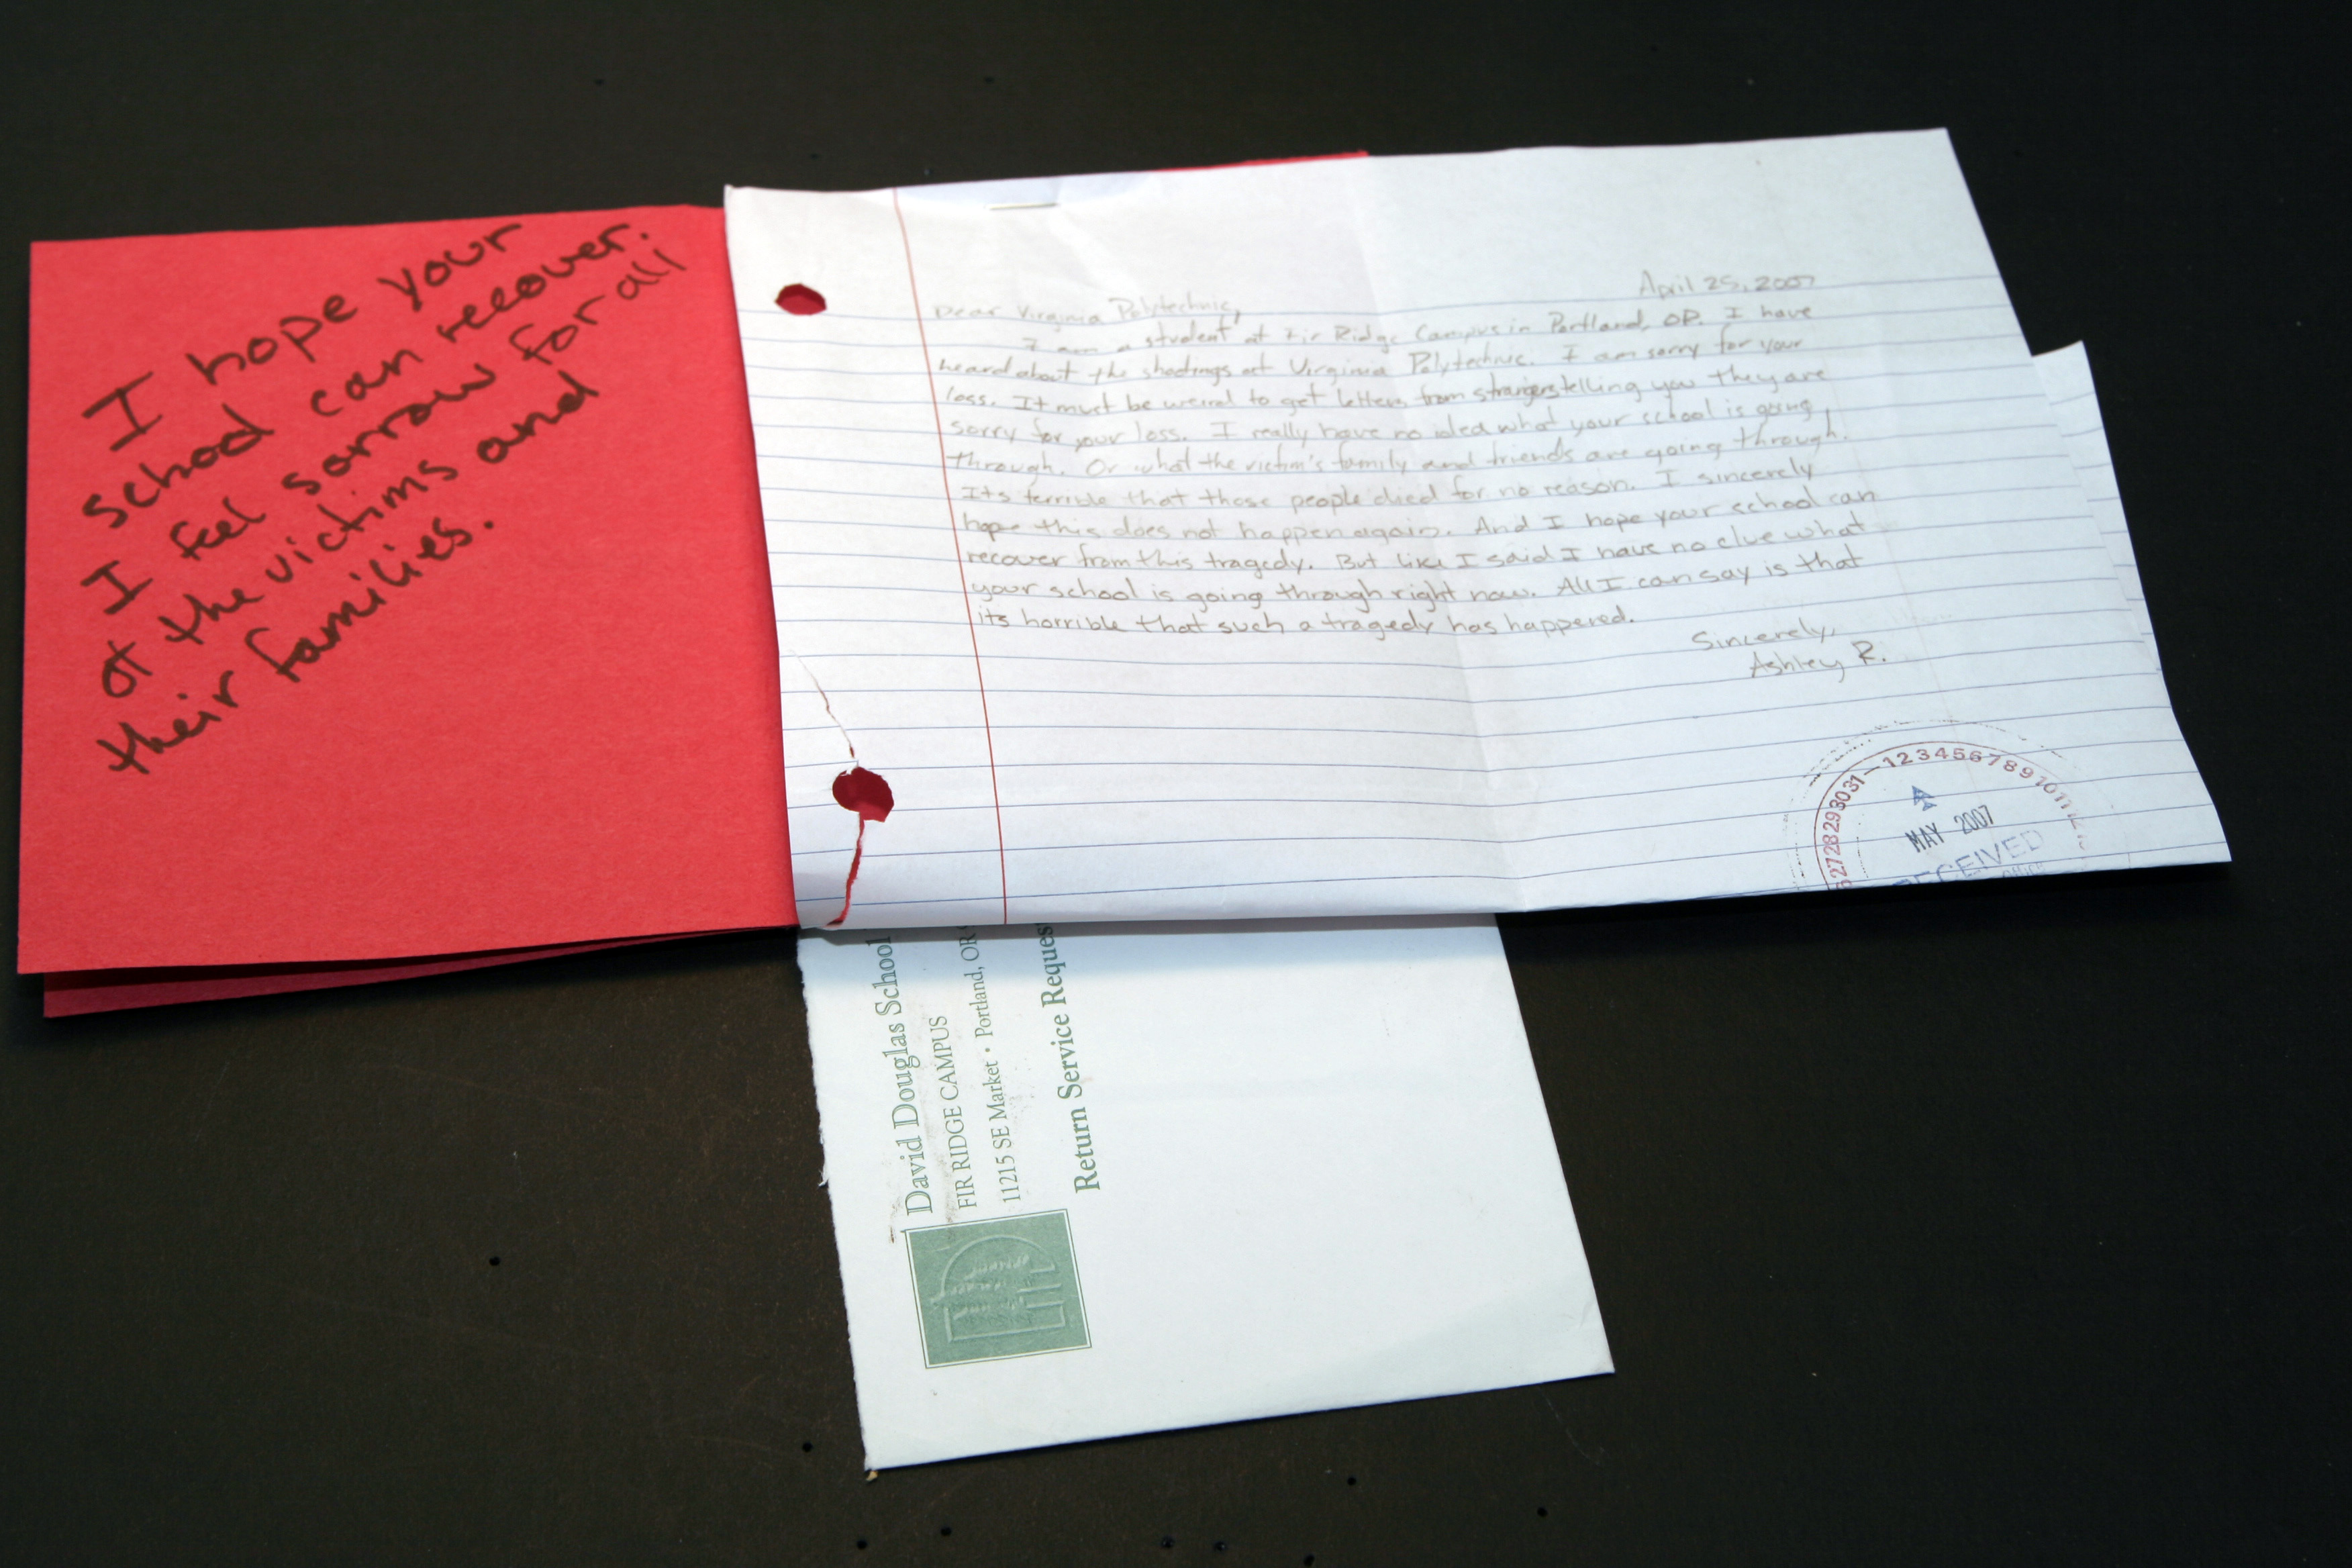 I hope your
school can recover.
I feel sorrow for all
of the victims and
their families.
April 25, 2007
Dear Virginia Polytechnic,
I am a student at Fir Ridge Campus in Portland, OR. I have
heard about the shootings at Virginia Polytechnic. I am sorry for your
loss. It must be weird to get letters from strangers telling you they are
sorry for your loss. I really have no idea what your school is going
through. Or what the victim's family and friends are going through.
Its terrible that those people died for no reason. I sincerely
hope this does not happen again. And I hope your school can
recover from this tragedy. But like I said I have no clue what
your school is going through right now. All I can say is that
its horrible that such a tragedy has happened.
Sincerely,
Ashley R.
28293031-1234567891011
MAY 2007
RECEIVED
David Douglas School
FIR RIDGE CAMPUS
11215 SE Market • Portland, OR
Return Service Reques